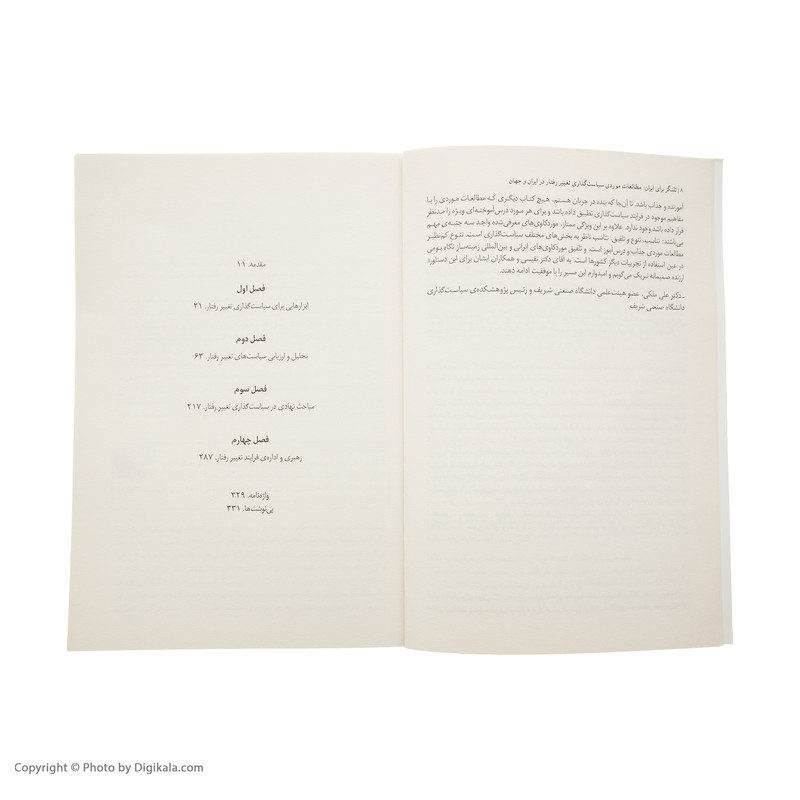 ۸ | تلنگر برای ایران: مطالعات موردی سیاست‌گذاری تغییر رفتار در ایران و جهان
آموزنده و جذاب باشد. تا آن‌جا که بنده در جریان هستم، هیچ کتاب دیگری که مطالعات موردی را با
مفاهیم موجود در فرایند سیاست‌گذاری تطبیق داده باشد و برای هر مورد درس‌آموخته‌ای ویژه را مدنظر
قرار داده باشد وجود ندارد. علاوه بر این ویژگی ممتاز، موردکاوی‌های معرفی‌شده واجد سه جنبه‌ی مهم
می‌باشند: تناسب، تنوع و تلفیق. تناسب ناظر به بخش‌های مختلف سیاست‌گذاری است. تنوع کم‌نظیر
مطالعات موردی جذاب و درس‌آموز است. و تلفیق موردکاوی‌های ایرانی و بین‌المللی زمینه‌ساز نگاه بومی
در عین استفاده از تجربیات دیگر کشورها است. به آقای دکتر نفیسی و همکاران ایشان برای این دستاورد
ارزنده صمیمانه تبریک می‌گویم و امیدوارم این مسیر را با موفقیت ادامه دهند.
ـ دکتر علی ملکی. عضو هیئت‌علمی دانشگاه صنعتی شریف و رئیس پژوهشکده‌ی سیاست‌گذاری
دانشگاه صنعتی شریف
مقدمه. ۱۱
فصل اول
ابزارهایی برای سیاست‌گذاری تغییر رفتار. ۲۱
فصل دوم
تحلیل و ارزیابی سیاست‌های تغییر رفتار. ۶۳
فصل سوم
مباحث نهادی در سیاست‌گذاری تغییر رفتار. ۲۱۷
فصل چهارم
رهبری و اداره‌ی فرایند تغییر رفتار. ۲۸۷
واژه‌نامه. ۳۲۹
پی‌نوشت‌ها. ۳۳۱
Copyright © Photo by Digikala.com